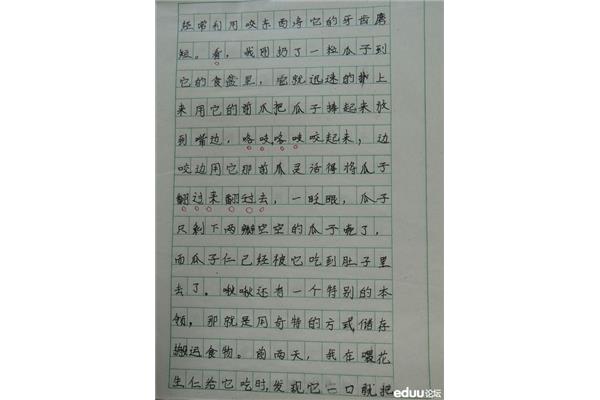 经常利用咬东西将它的牙齿磨
短。看，我用扔了一粒瓜子到
它的食盆里，它就迅速的扑上
来用它的前爪把瓜子捧起来放
到嘴边，喀吱喀吱咬起来，边
咬边用它那前爪灵活得将瓜子
翻过来翻过去，一眨眼，瓜子
只剩下两瓣空空的瓜子壳了，
而瓜子仁已经被它吃到肚子里
去了。啾啾还有一个特别的本
领，那就是用奇特的方式储存
搬运食物。前两天，我在喂花
生仁给它吃时，发现它一口就把
eduu论坛